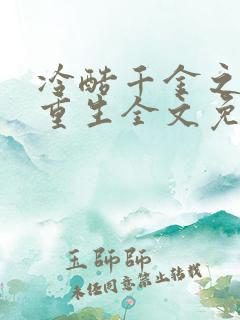 冷酷千金之
重生全文免
王師師
未经同意禁止转载